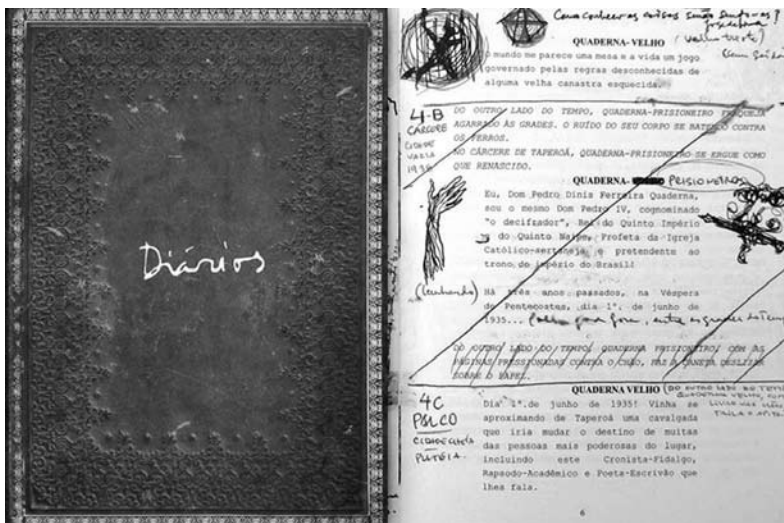 Diários
Como conhecer as coisas senão sendo-as?
QUADERNA-VELHO
(velho texto)
O mundo me parece uma mesa e a vida um jogo
governado pelas regras desconhecidas de
alguma velha canastra esquecida.
4-B
CÁRCERE
CIDADE
VAZIA
1938
DO OUTRO LADO DO TEMPO, QUADERNA-PRISIONEIRO FRAQUEJA
AGARRADO ÀS GRADES. O RUÍDO DO SEU CORPO SE BATENDO CONTRA
OS FERROS.
NO CÁRCERE DE TAPEROÁ, QUADERNA-PRISIONEIRO SE ERGUE COMO
QUE RENASCIDO.
QUADERNA- PRISIONEIRO
Eu, Dom Pedro Dinis Ferreira Quaderna,
sou o mesmo Dom Pedro IV, cognominado
"o decifrador", Rei do Quinto Império
e do Quinto Naipe, Profeta da Igreja
Católico-sertaneja e pretendente ao
trono do império do Brasil!
Há três anos passados, na Véspera
de Pentecostes, dia 1º. de junho de
1935...
DO OUTRO LADO DO TEMPO, QUADERNA PRISIONEIRO, COM AS
PÁGINAS PRESSIONADAS CONTRA O CHÃO, FAZ A CANETA DESLIZAR
SOBRE O PAPEL.
QUADERNA VELHO (DO OUTRO LADO DO TEMPO
QUADERNA VELHO,
4C
PALCO
CIDADE CHEIA
PLATÉIA.
Dia 1º.de junho de 1935! Vinha se
aproximando de Taperoá uma cavalgada
que iria mudar o destino de muitas
das pessoas mais poderosas do lugar,
incluindo este Cronista-Fidalgo,
Rapsodo-Acadêmico e Poeta-Escrivão que
lhes fala.
6